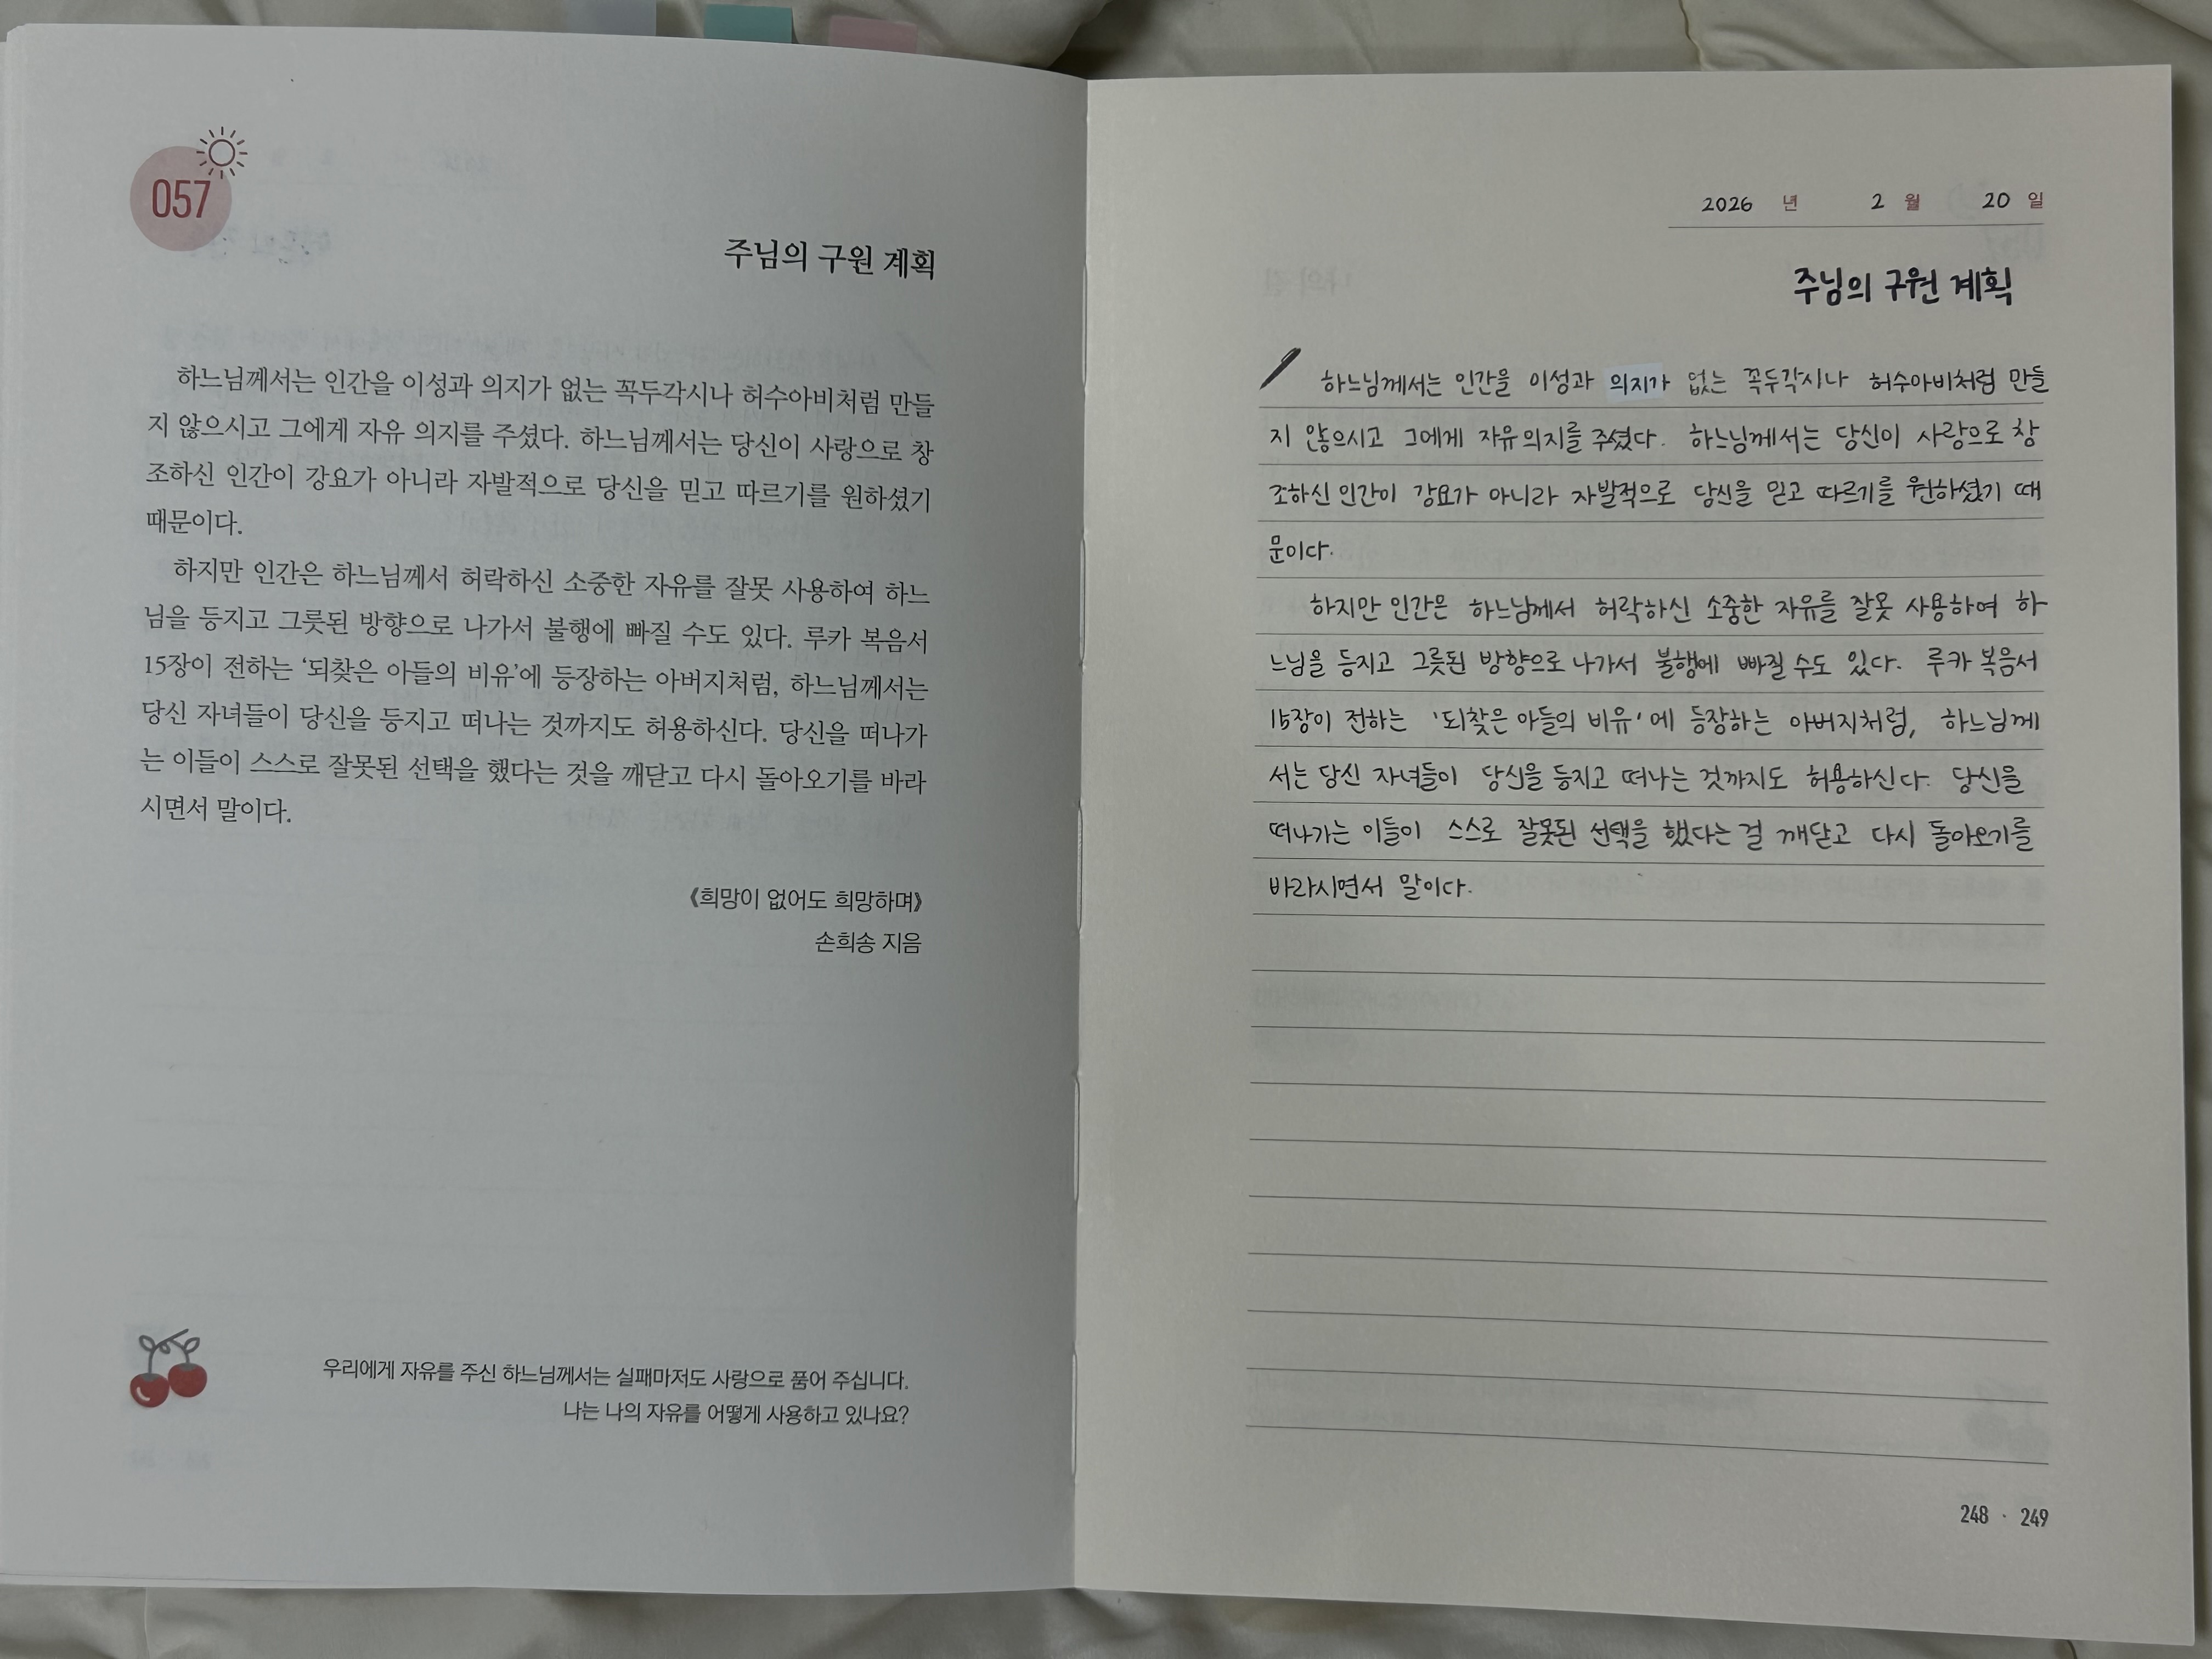 057
주님의 구원 계획
하느님께서는 인간을 이성과 의지가 없는 꼭두각시나 허수아비처럼 만들
지 않으시고 그에게 자유 의지를 주셨다. 하느님께서는 당신이 사랑으로 창
조하신 인간이 강요가 아니라 자발적으로 당신을 믿고 따르기를 원하셨기
때문이다.
하지만 인간은 하느님께서 허락하신 소중한 자유를 잘못 사용하여 하느
님을 등지고 그릇된 방향으로 나가서 불행에 빠질 수도 있다. 루카 복음서
15장이 전하는 ‘되찾은 아들의 비유’에 등장하는 아버지처럼, 하느님께서는
당신 자녀들이 당신을 등지고 떠나는 것까지도 허용하신다. 당신을 떠나가
는 이들이 스스로 잘못된 선택을 했다는 것을 깨닫고 다시 돌아오기를 바라
시면서 말이다.
《희망이 없어도 희망하며》
손희송 지음
우리에게 자유를 주신 하느님께서는 실패마저도 사랑으로 품어 주십니다.
나는 나의 자유를 어떻게 사용하고 있나요?
2026 년 2 월 20 일
주님의 구원 계획
하느님께서는 인간을 이성과 의지가 없는 꼭두각시나 허수아비처럼 만들
지 않으시고 그에게 자유의지를 주셨다. 하느님께서는 당신이 사랑으로 창
조하신 인간이 강요가 아니라 자발적으로 당신을 믿고 따르기를 원하셨기 때
문이다.
하지만 인간은 하느님께서 허락하신 소중한 자유를 잘못 사용하여 하
느님을 등지고 그릇된 방향으로 나가서 불행에 빠질 수도 있다. 루카 복음서
15장이 전하는 '되찾은 아들의 비유'에 등장하는 아버지처럼, 하느님께
서는 당신 자녀들이 당신을 등지고 떠나는 것까지도 허용하신다. 당신을
떠나가는 이들이 스스로 잘못된 선택을 했다는 걸 깨닫고 다시 돌아오기를
바라시면서 말이다.
248 · 249